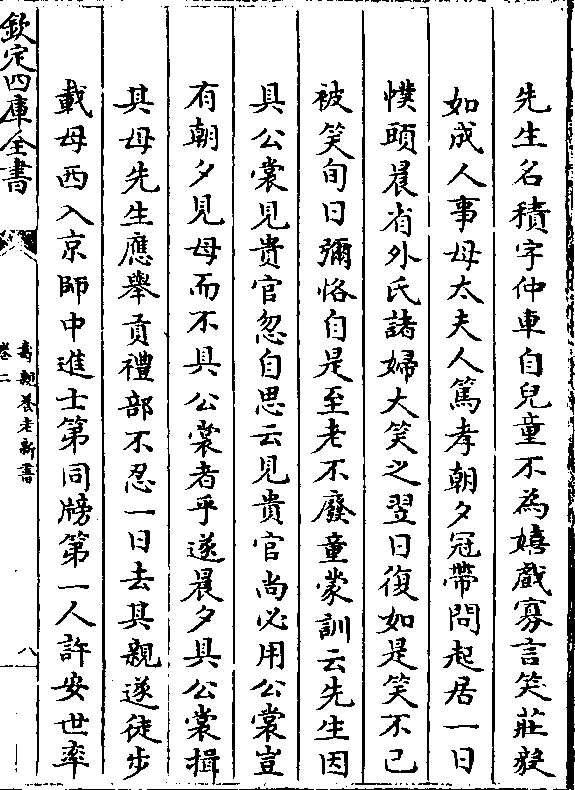 先生名積字仲車自兒童不為嬉戲寡言笑莊毅
如成人事母太夫人篤孝朝夕冠帶問起居一日
幞頭晨省外氏諸婦大笑之翌日復如是笑不已
被笑旬日彌恪自是至老不廢童蒙訓云先生因
具公裳見貴官忽自思云見貴官尚必用公裳豈
有朝夕見母而不具公裳者乎遂晨夕具公裳揖
其母先生應舉貢禮部不忍一日去其親遂徒步
載母西入京師中進士第同牓第一人許安世率
欽定四庫全書
壽親養老新書
卷二
八